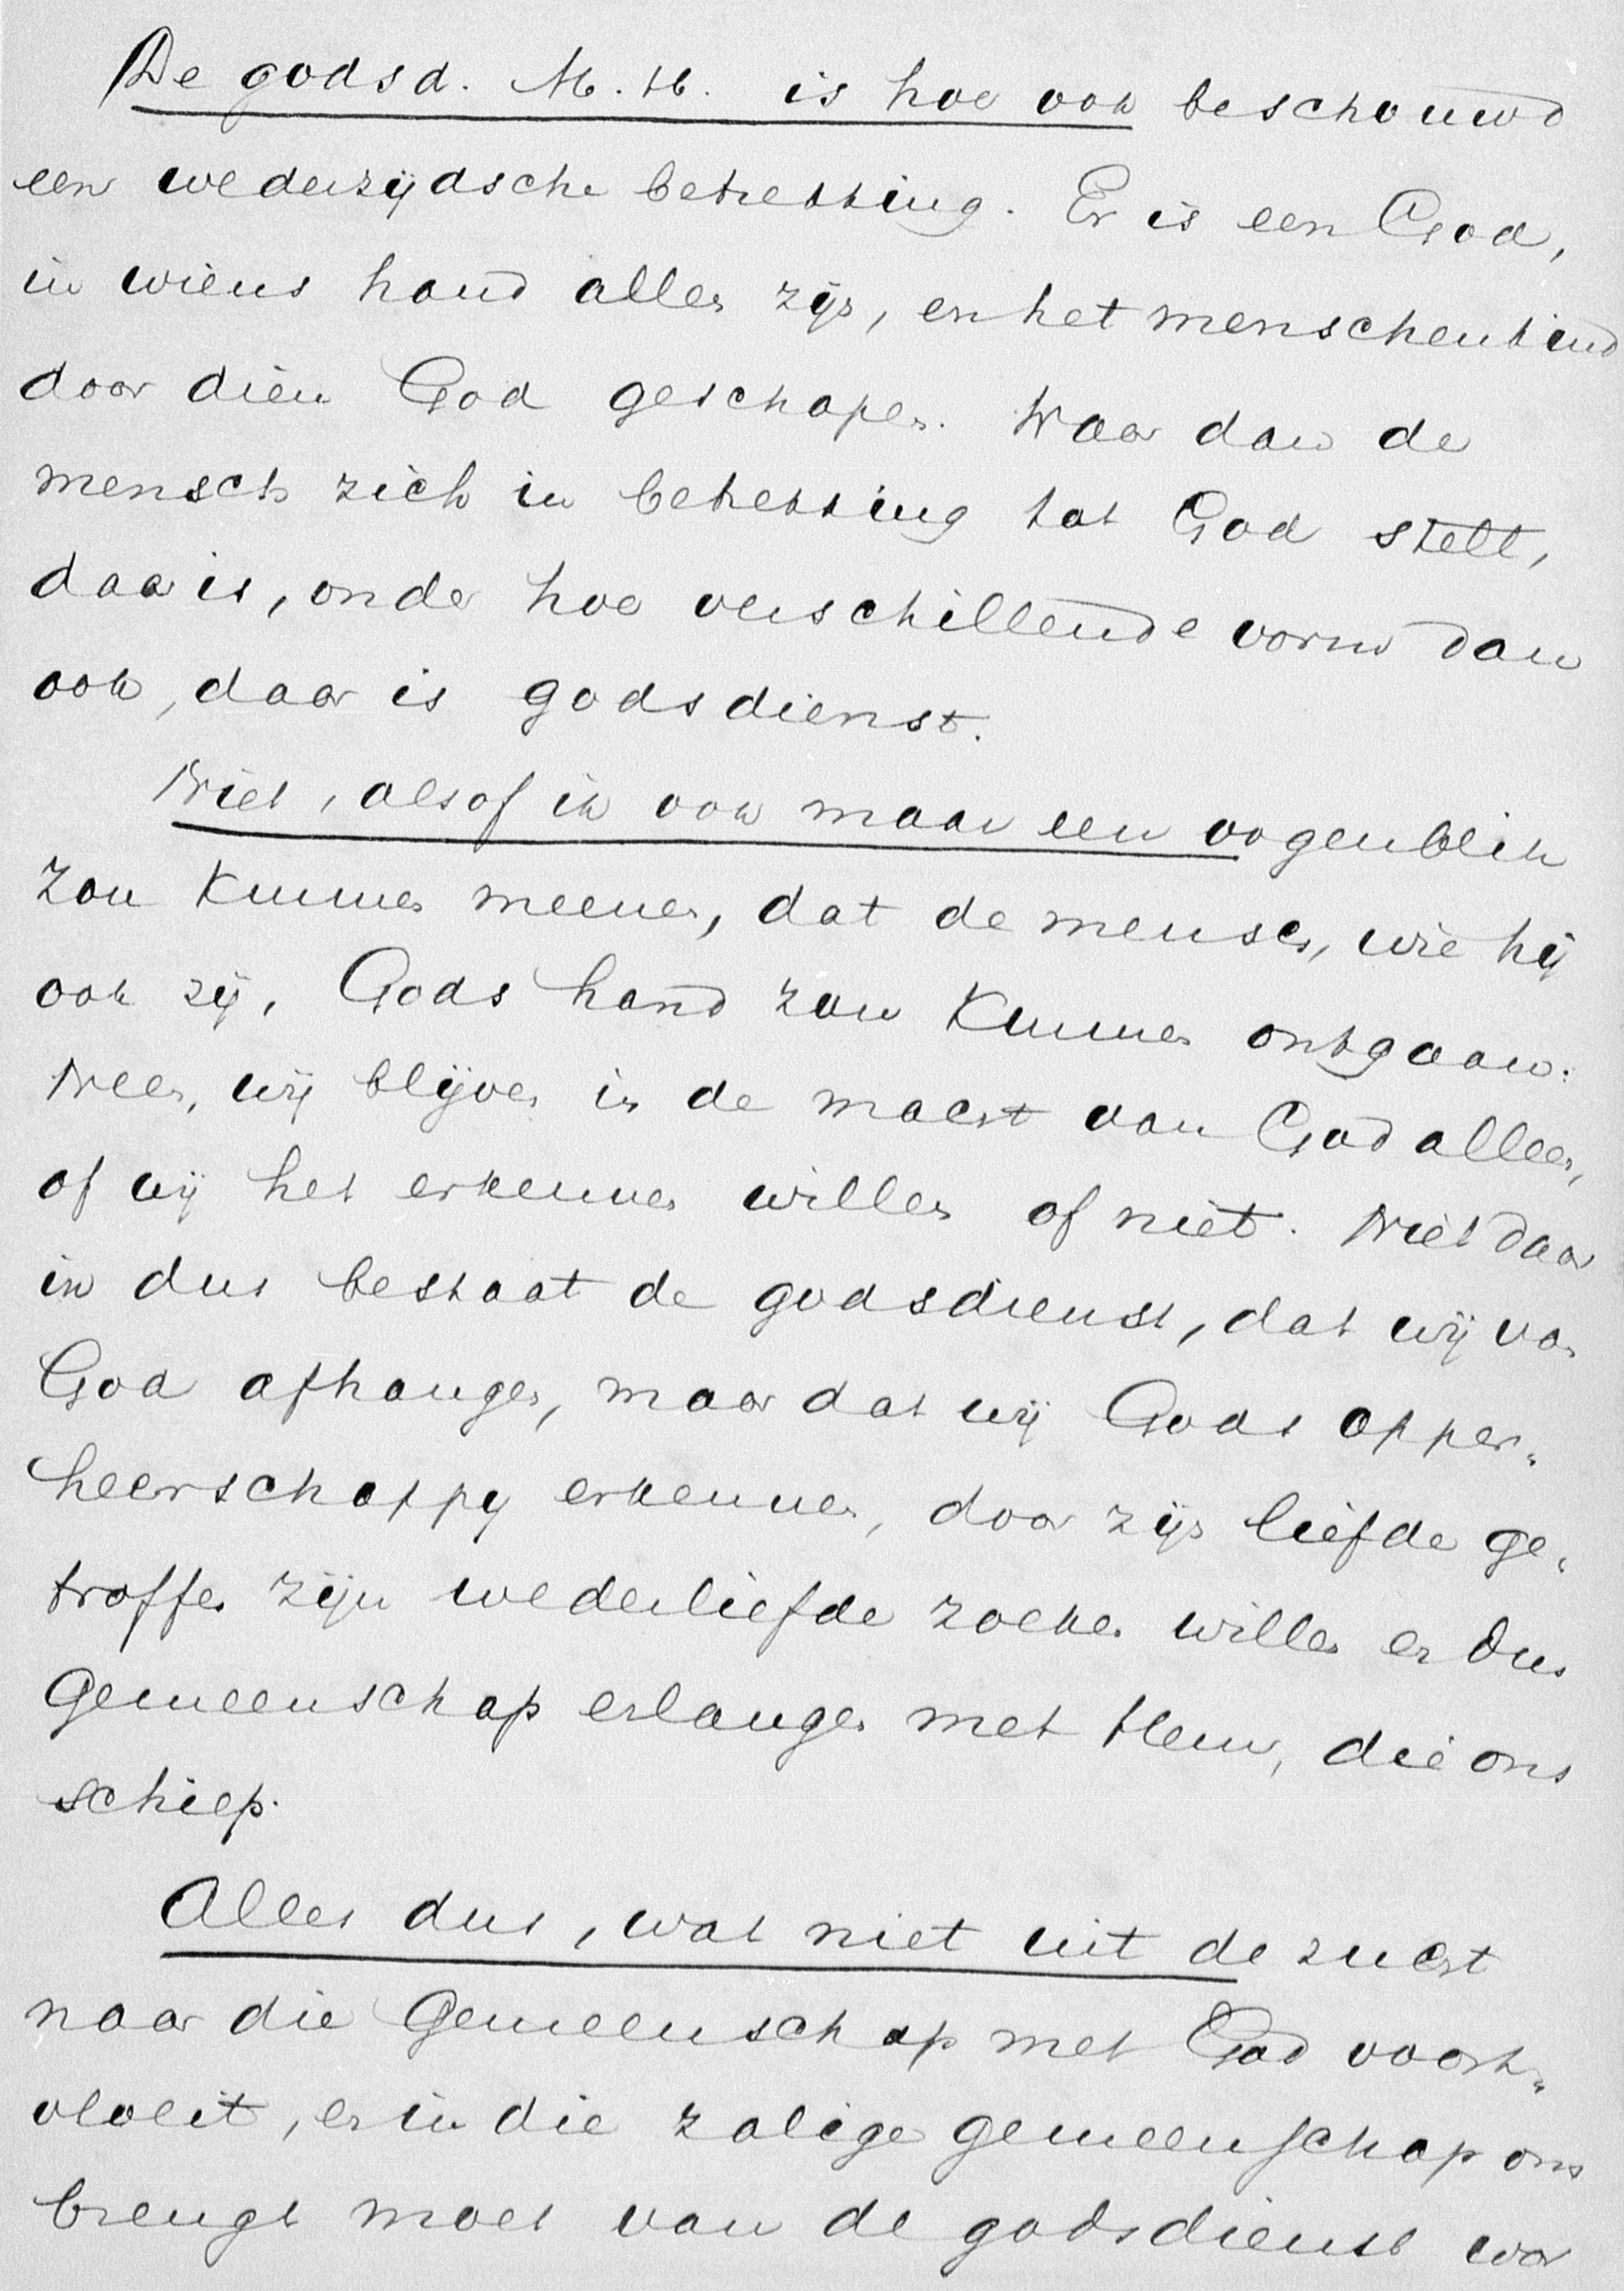 De godsd. M. H. is hoe ook beschouwd
een wederzijdsche betrekking. Er is een God,
in wiens hand allen zijn, en het menschenkind
door dien God geschapen. Waar dan de
mensch zich in betrekking tot God stelt,
daar is, onder hoe verschillende vorm dan
ook, daar is godsdienst.
Niet, alsof ik ook maar een oogenblik
zou kunnen meenen, dat de mensch, wie hij
ook zij, Gods hand zou kunnen ontgaan.
Neen, wij blijven in de macht van God alleen,
of wij het erkennen willen of niet. Niet daar
in dus bestaat de godsdienst, dat wij van
God afhangen, maar dat wij Gods opper„
heerschappy erkennen, door zijn liefde ge„
troffen zijn wederliefde zoeken willen en dus
Gemeenschap erlangen met Hem, die ons
schiep.
Alles dus, wat niet uit de zucht
naar die Gemeenschap met God voort„
vloeit, en in die zalige gemeenschap ons
brengt moet van de godsdienst wor